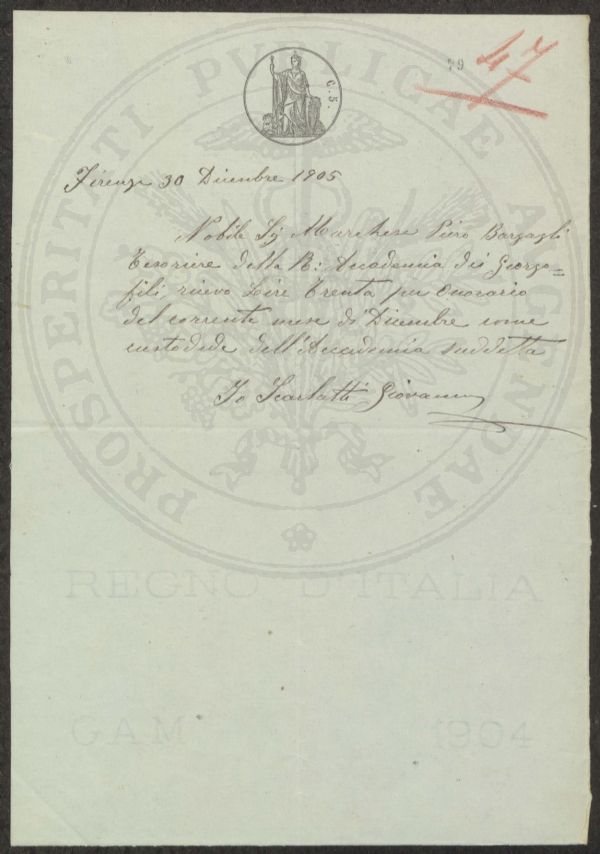 79 47
C. 5.
Firenze 30 Dicembre 1905
Nobile Sig Marchese Piero Bargagli
Tesoriere della R: Accademia dei Georgo=
fili, ricevo Lire Trenta per Onorario
del corrente mese di Dicembre come
custode dell'Accademia suddetta
Io Scarlatti Giovanni
PROSPERITATI PVBLICAE AVGENDAE
REGNO D'ITALIA
GAM 1904